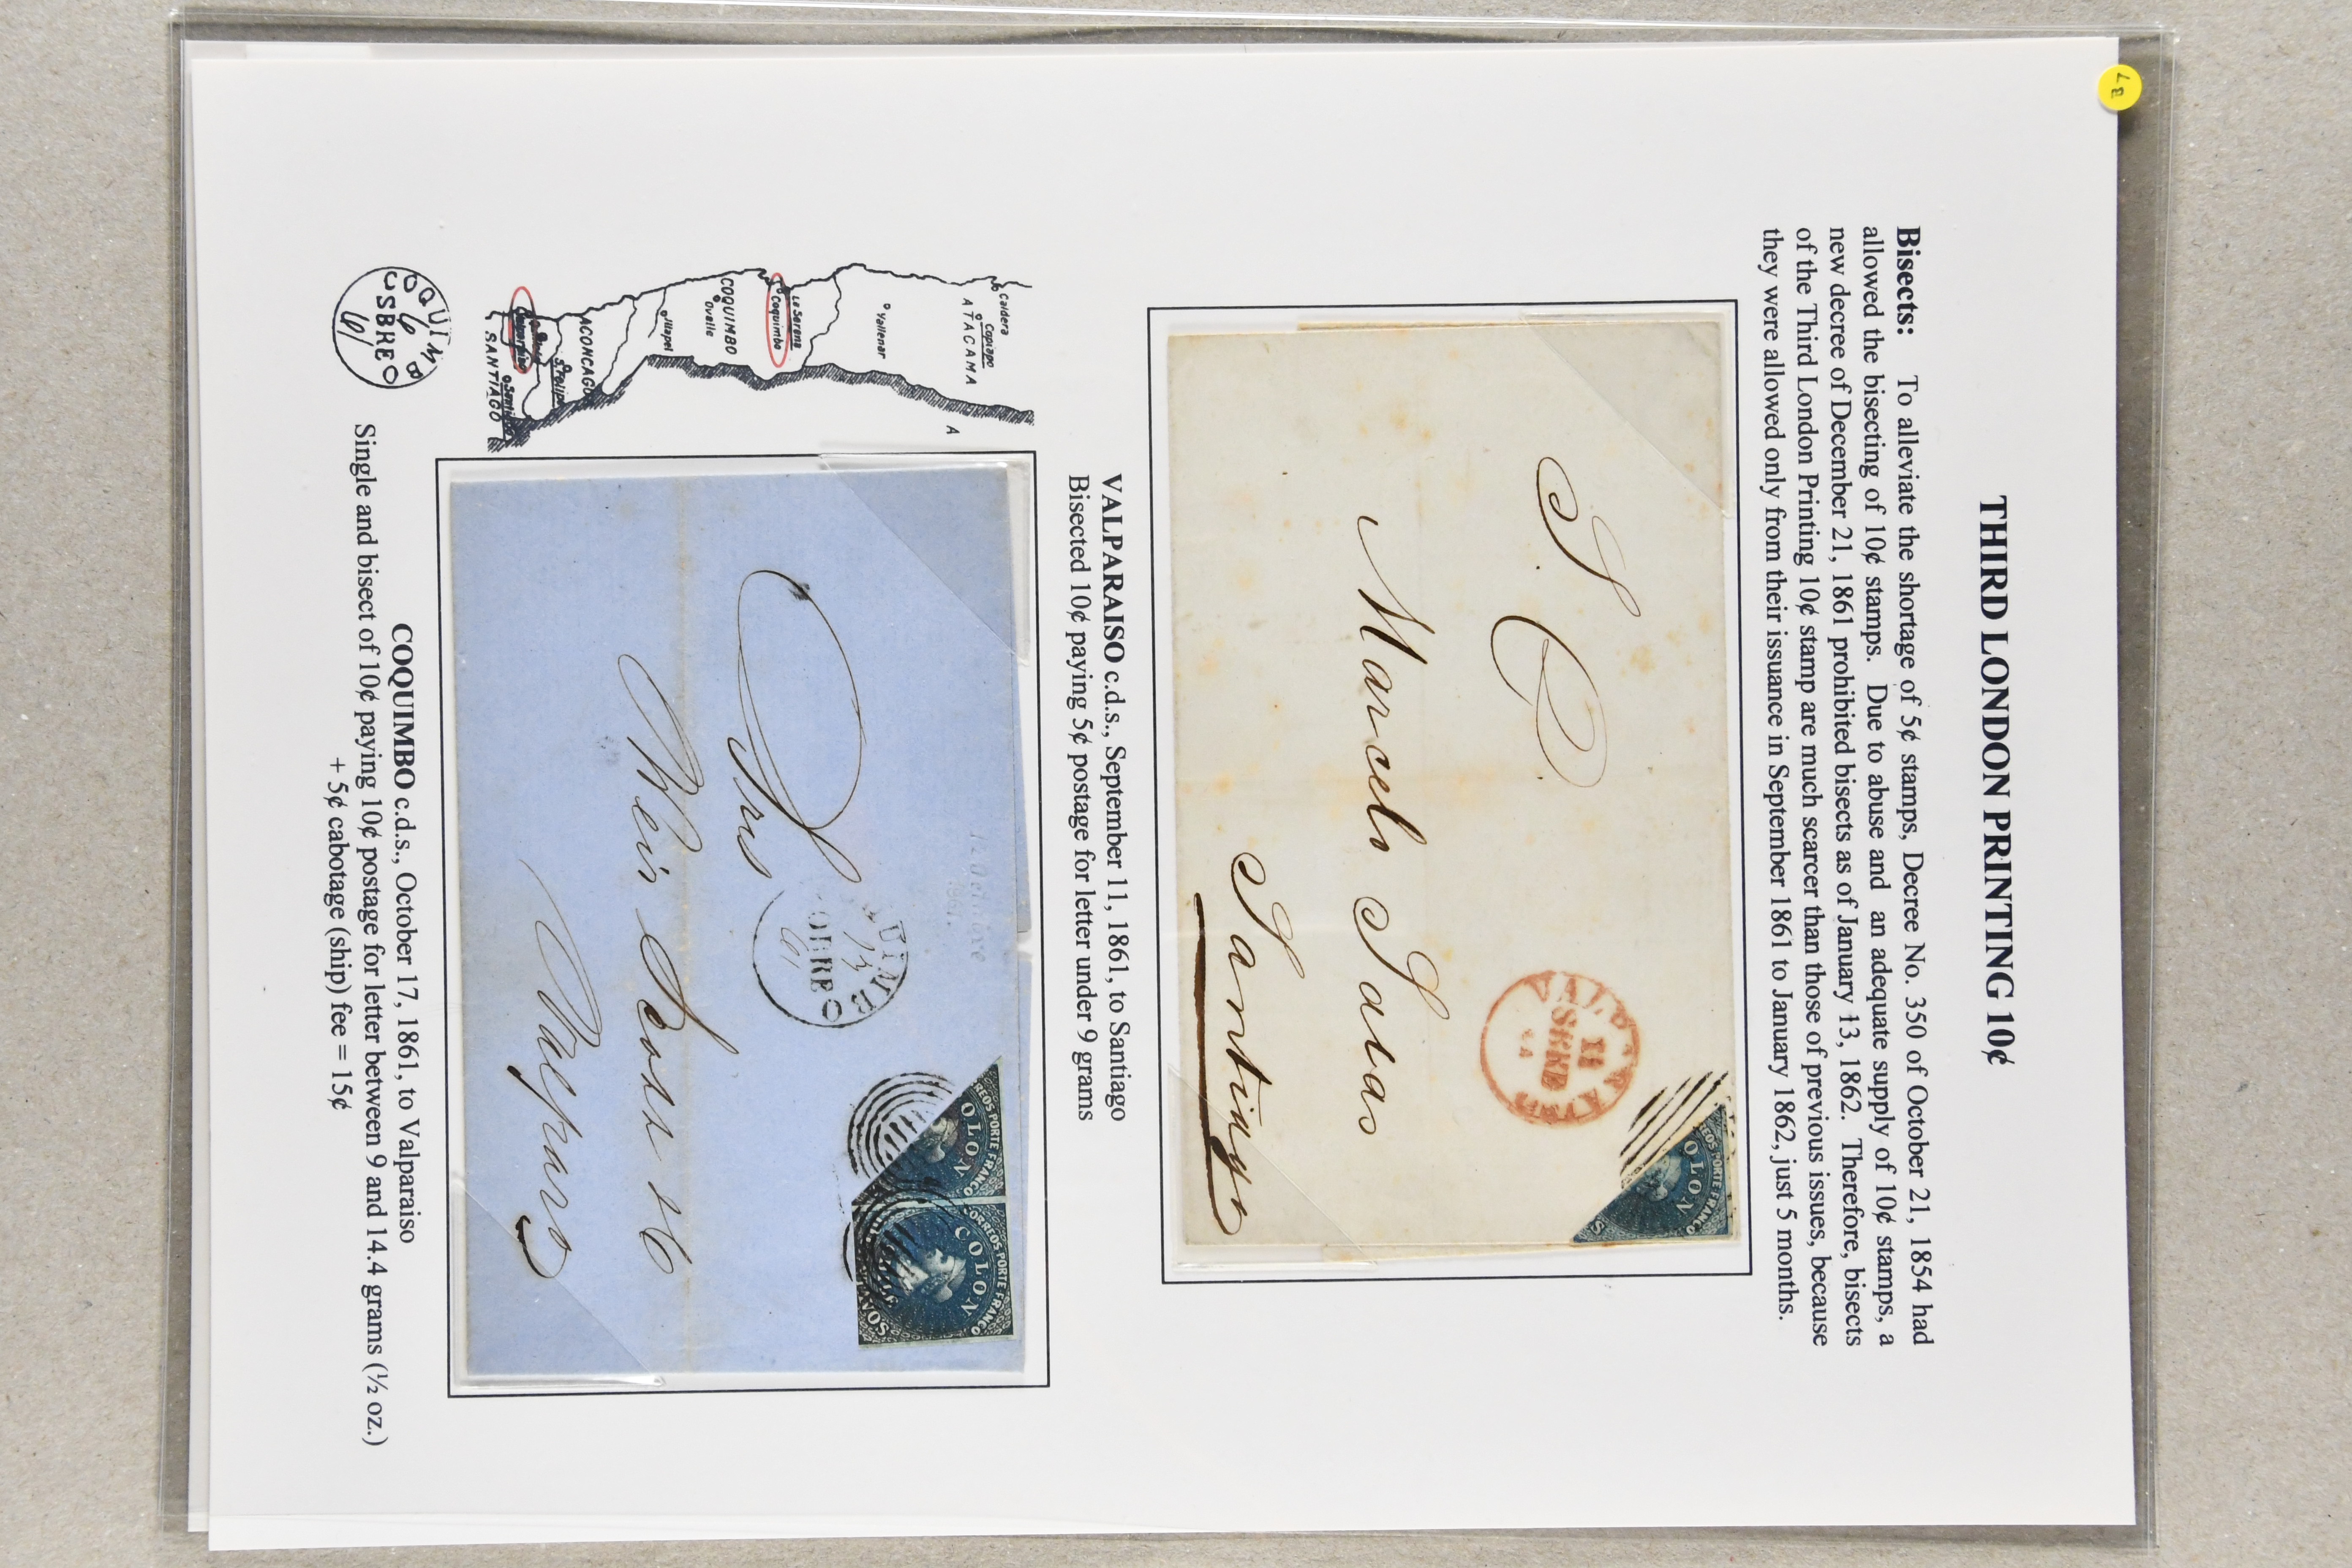 87
THIRD LONDON PRINTING 10¢
Bisects: To alleviate the shortage of 5¢ stamps, Decree No. 350 of October 21, 1854 had
allowed the bisecting of 10¢ stamps. Due to abuse and an adequate supply of 10¢ stamps, a
new decree of December 21, 1861 prohibited bisects as of January 13, 1862. Therefore, bisects
of the Third London Printing 10¢ stamp are much scarcer than those of previous issues, because
they were allowed only from their issuance in September 1861 to January 1862, just 5 months.
COLON
S. C.
VALPARAISO
11
SBRE
Marcelo Salas
Santiago
VALPARAISO c.d.s., September 11, 1861, to Santiago
Bisected 10¢ paying 5¢ postage for letter under 9 grams
Caldera
Copiapo
ATACAMA
A
Vallenar
La Serena
Coquimbo
COQUIMBO
Ovalle
Illapel
ACONCAGU
S.Felipe
Valparaiso
Santi
SANTIAGO
OLON
REOS PORTE FRANCO
COLON
CORREOS PORTE FRANCO
UIMB
OBRE
61
Srs
Weir Scott & C
Valparaiso
COQUIMB
6
SBRE
61
COQUIMBO c.d.s., October 17, 1861, to Valparaiso
Single and bisect of 10¢ paying 10¢ postage for letter between 9 and 14.4 grams (½ oz.)
+ 5¢ cabotage (ship) fee = 15¢